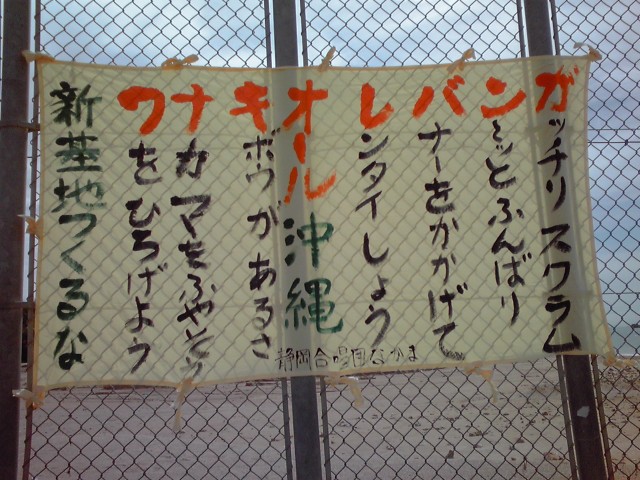 ガッチリ スクラム
ン〜ッとふんばり
バナーをかかげて
レンタイしよう
オール沖縄
キボウがあるさ
ナカマをふやそう
ワをひろげよう
新基地つくるな
静岡合唱団なかま